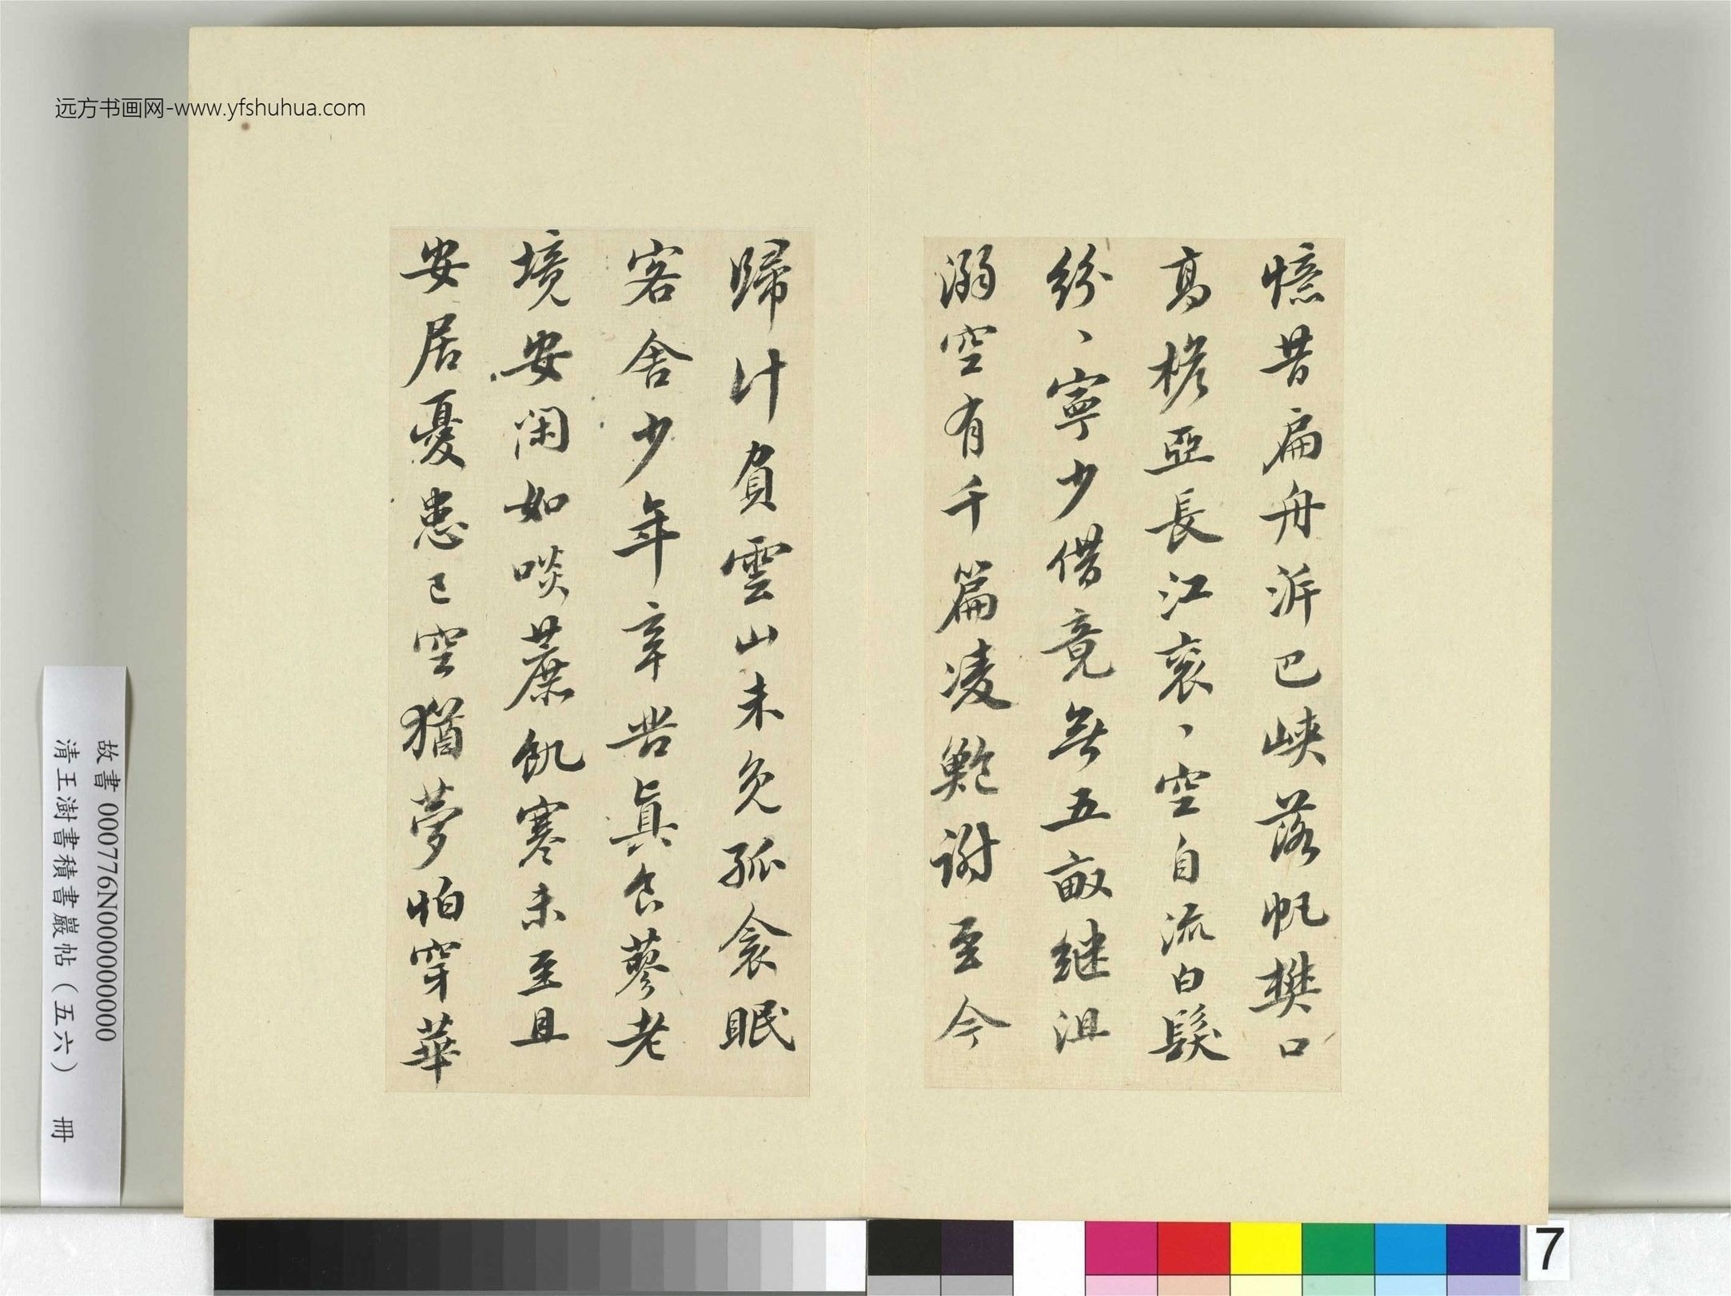 远方书画网-www.yfshuhua.com
憶昔扁舟泝巴峽落帆樊口
高桅亞長江袞、空自流白髮
紛、寧少借竟無五畝繼沮
溺空有千篇凌鮑謝至今
歸計負雲山未免孤衾眠
客舍少年辛苦真食蓼老
境安閑如啖蔗飢寒未至且
安居憂患已空猶夢怕穿華
故書 000776N000000000
清王澍書積書巖帖（五六） 冊
7